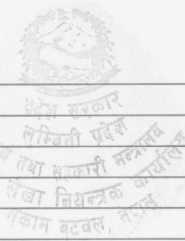 प्रदेश सरकार
लुम्बिनी प्रदेश
तथा सरकारी मन्त्रालय
लेखा नियन्त्रक कार्यालय
मुकाम बुटवल, नेपाल